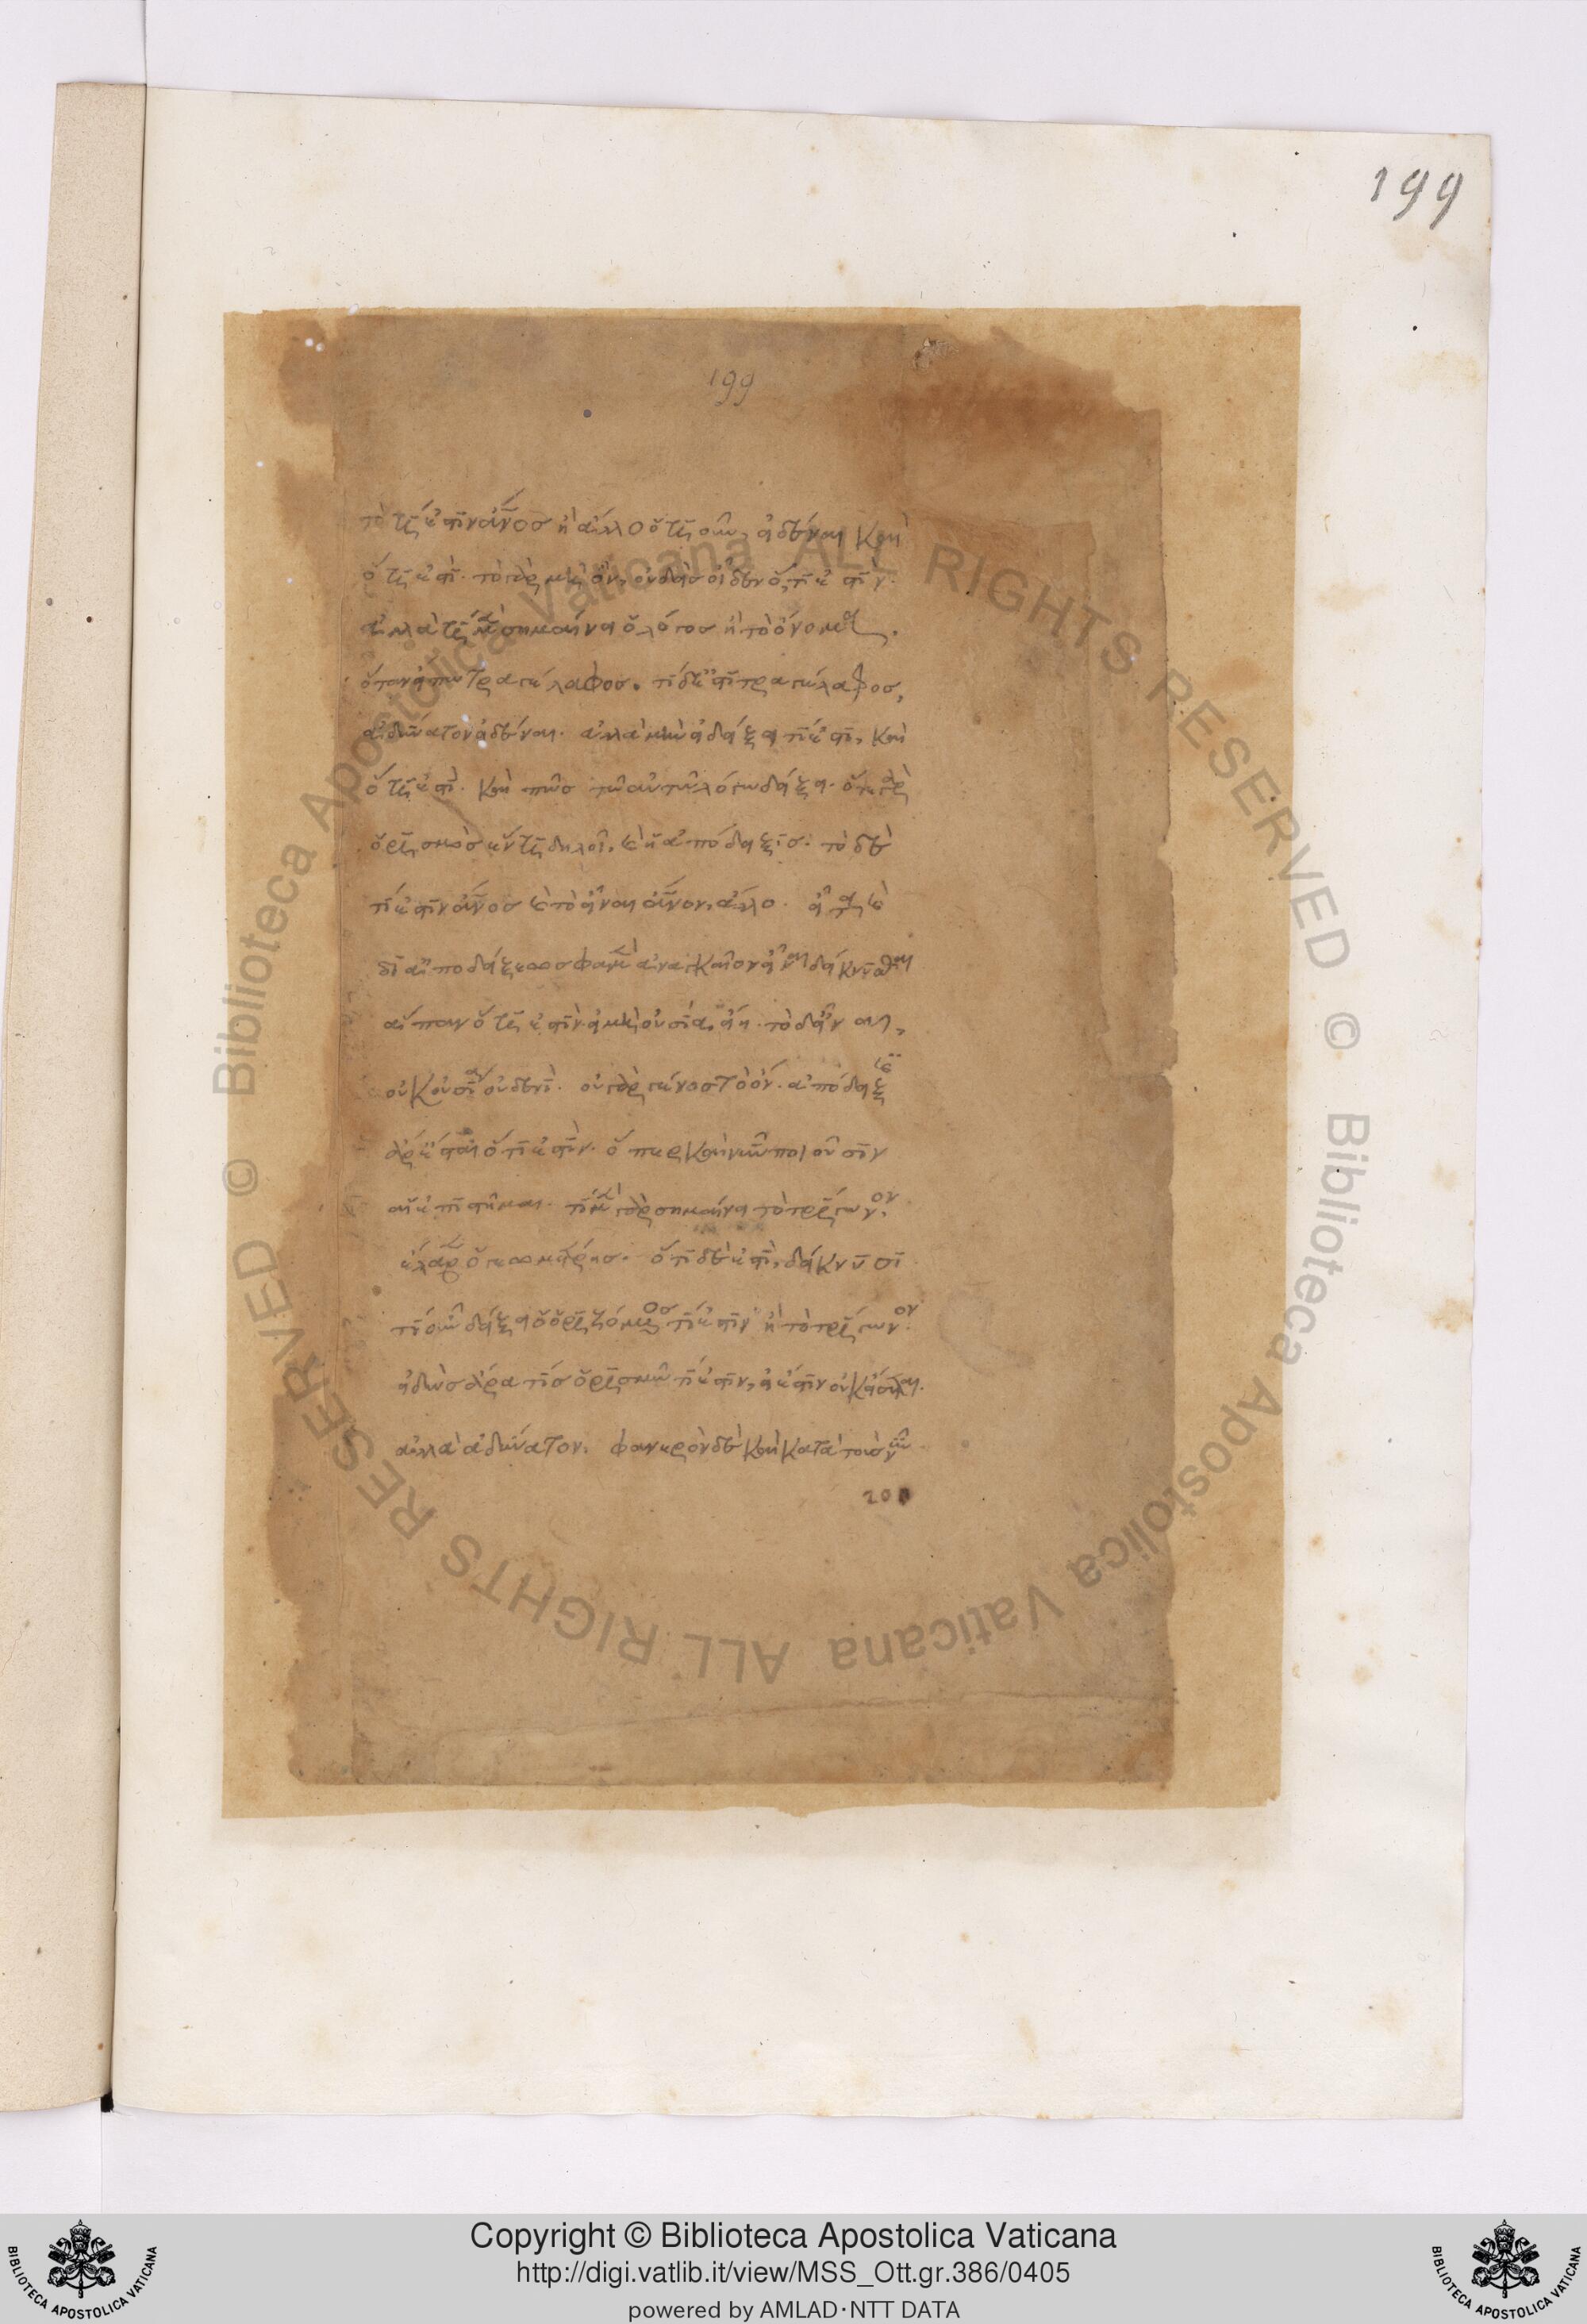 199
199
τὸ τί ἐστιν ἄνος ἢ ἄλλο ὅτι οῦν, εἰδέναι καὶ
ὅτι ἐστί· τὸ γὰρ μὴ ὄν, οὐδεὶς οἶδεν ὅ,τι ἐστίν·
ἀλλὰ τί μὲν σημαίνει ὁ λόγος ἢ τὸ ὄνομα.
ὅταν εἴπω τραγέλαφος. τί δ' ἐστὶ τραγέλαφος,
ἀδύνατον εἰδέναι. ἀλλὰ μὴν εἰ δείξει τί ἐστι, καὶ
ὅτι ἐστί. καὶ πῶς τῶ αὐτῶ λόγω δείξει. ὅ τε γὰρ
ὁρισμὸς ἕν τι δηλοῖ, καὶ ἡ ἀπόδειξις. τὸ δὲ
τί ἐστιν ἄνος καὶ τὸ εἶναι ἄνον, ἄλλο. εἶτα καὶ
δι' ἀποδείξεως φαμὲν ἀναγκαῖον εἶναι δείκνυσθαι
ἅπαν ὅτι ἐστίν. εἰ μὴ οὐσία, εἴη. τὸ δ' εἶναι,
οὐκ οὐσία οὐδενί. οὐ γὰρ γένος τὸ ὄν. ἀπόδειξις
ἄρ' ἔσται ὅτι ἐστίν. ὅπερ καὶ νῦν ποιοῦσιν
αἱ ἐπιστῆμαι. τί μὲν γὰρ σημαίνει τὸ τρίγωνον,
ἔλαβεν ὁ γεωμέτρης. ὅτι δὲ ἐστί, δείκνυσι
τί οὖν δείξει ὁ ὁριζόμενος τί ἐστιν ἢ τὸ τρίγωνον.
εἰδὼς ἄρα τις ὁρισμῶ τί ἐστιν, εἰ ἔστιν οὐκ εἴσεται.
ἀλλὰ ἀδύνατον. φανερὸν δὲ καὶ κατὰ τοὺς νῦν
200
Copyright © Biblioteca Apostolica Vaticana
http://digi.vatlib.it/view/MSS_Ott.gr.386/0405
powered by AMLAD·NTT DATA
BIBLIOTECA APOSTOLICA VATICANA
BIBLIOTECA APOSTOLICA VATICANA
Biblioteca Apostolica Vaticana ALL RIGHTS RESERVED ©
Biblioteca Apostolica Vaticana ALL RIGHTS RESERVED ©